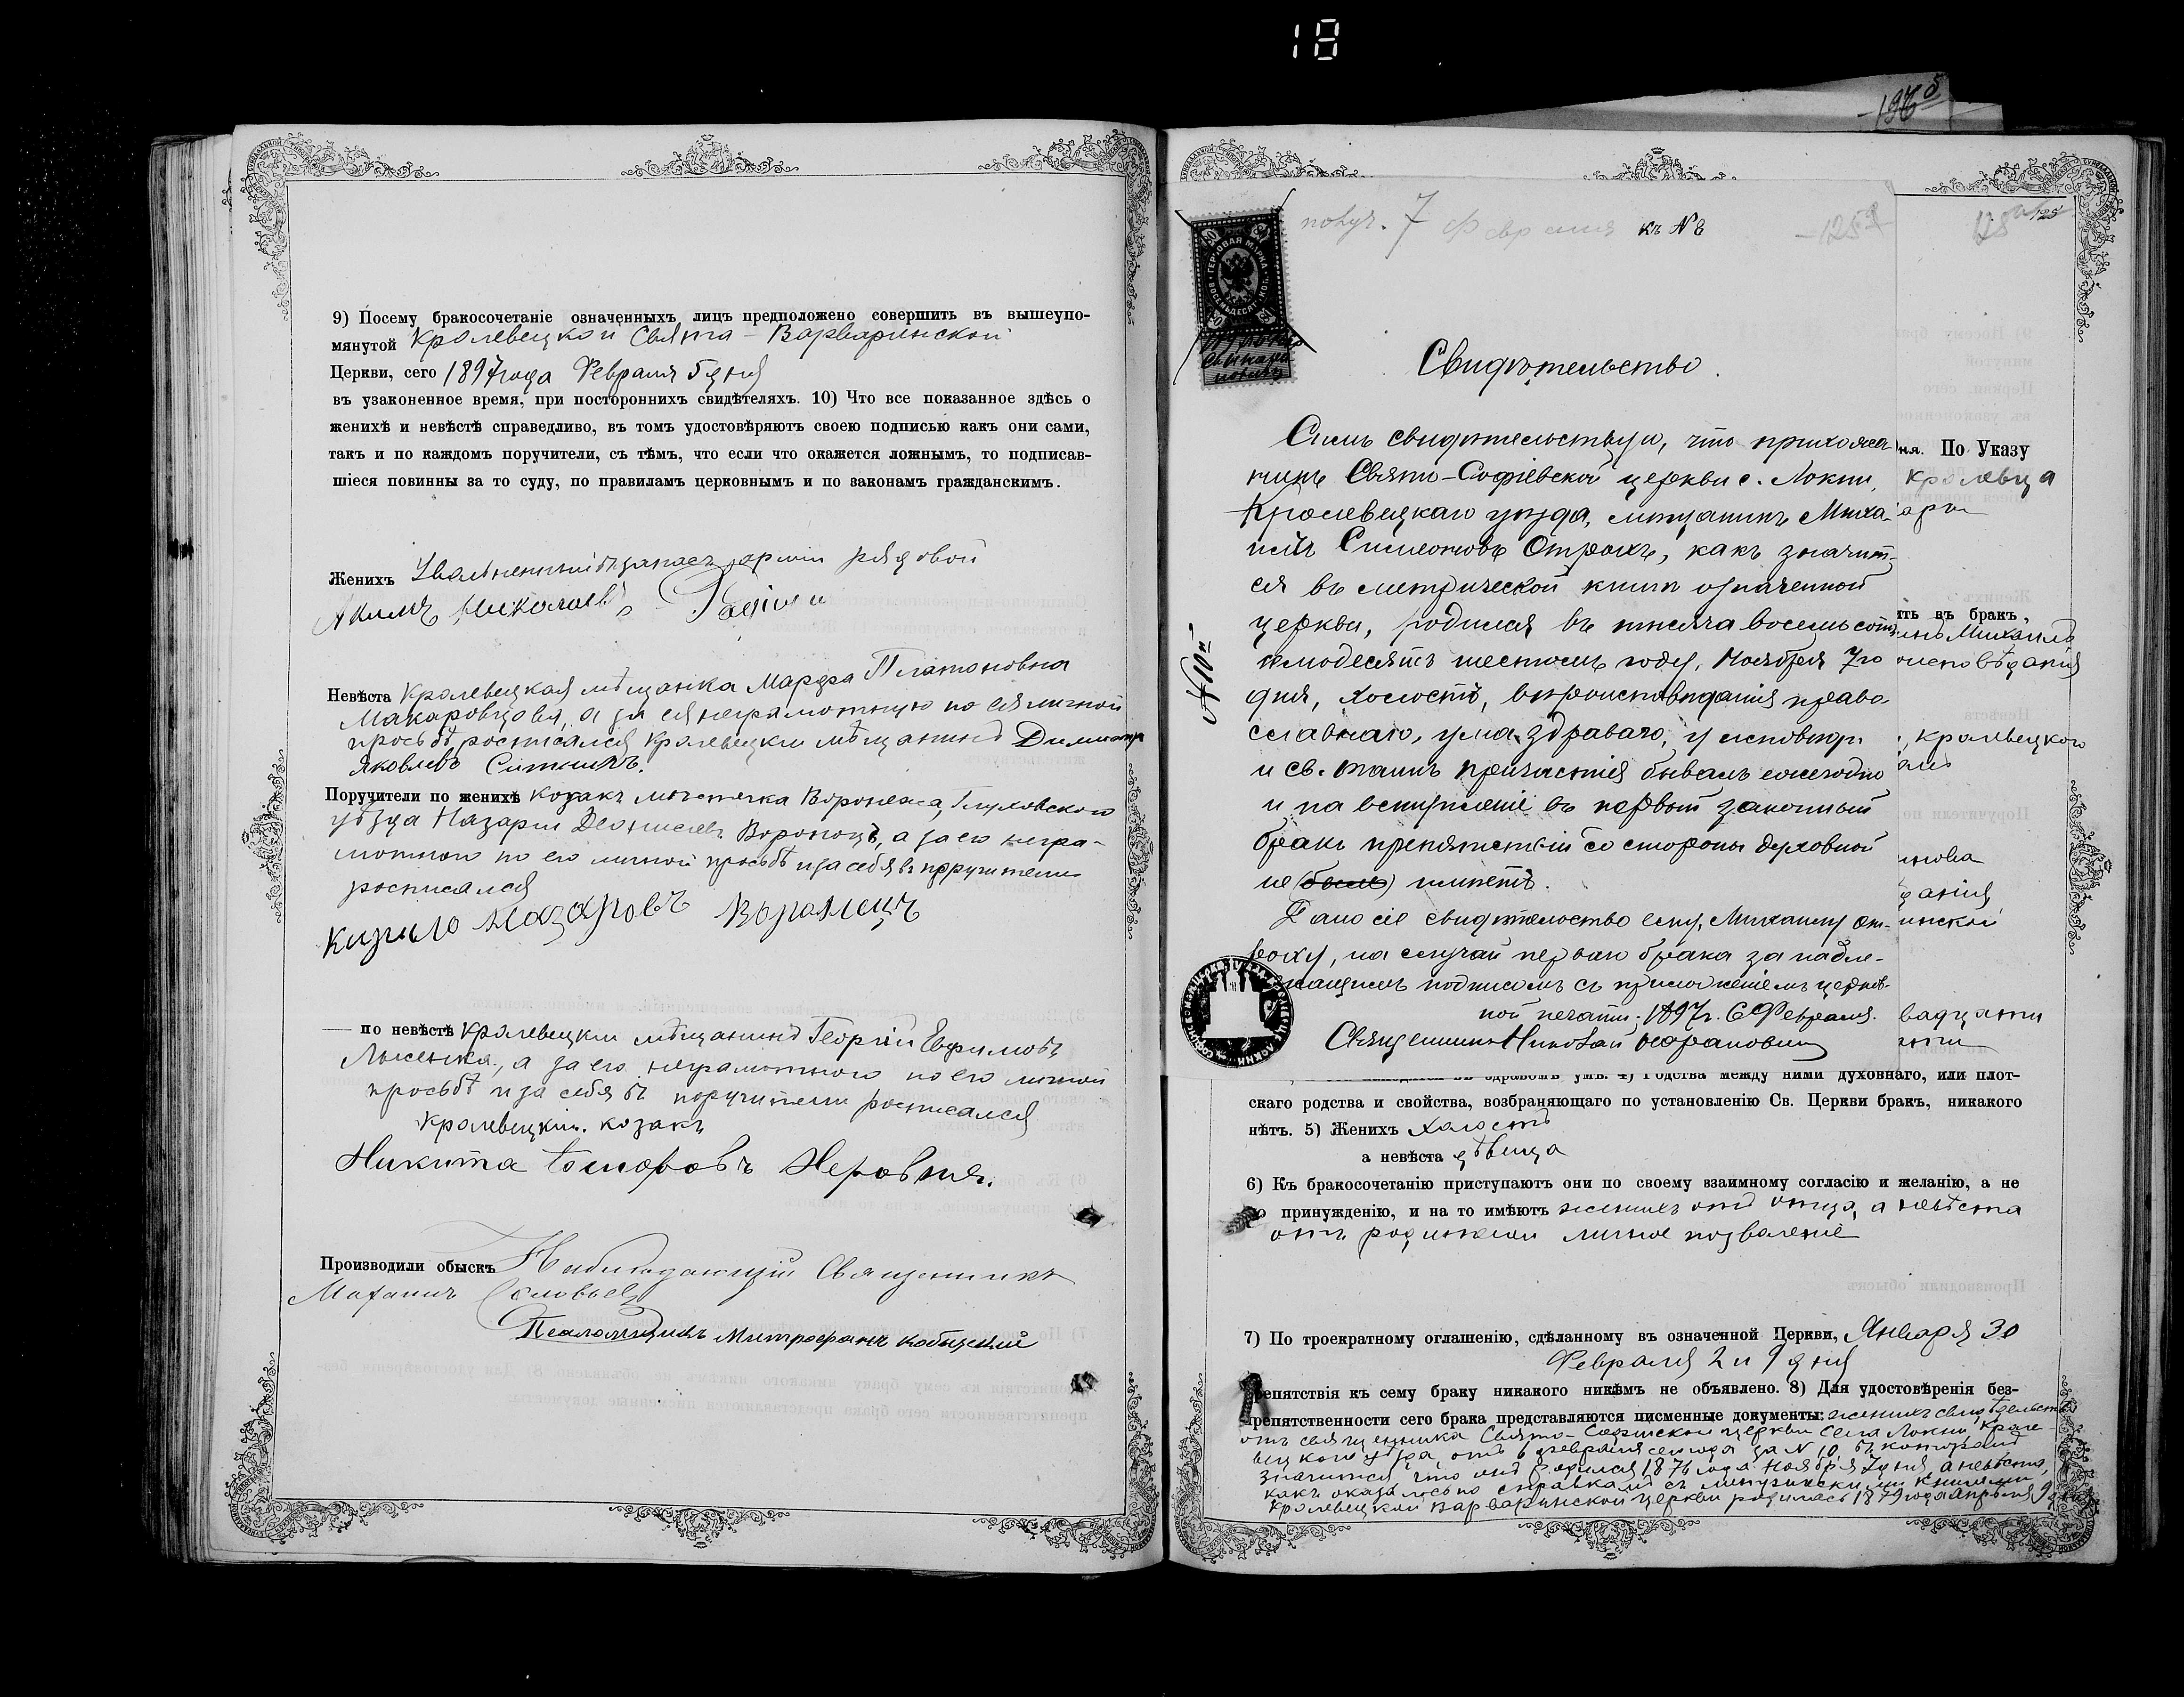 18
9) Посему бракосочетаніе означенныхъ лицъ предположено совершить въ вышеупо-
мянутой Кролевецкой Свято-Варваринской
Церкви, сего 1897 года Февраля 5 дня
въ узаконенное время, при постороннихъ свидѣтеляхъ. 10) Что все показанное здѣсь о
женихѣ и невѣстѣ справедливо, въ томъ удостовѣряютъ своею подписью какъ они сами,
такъ и по каждомъ поручители, съ тѣмъ, что если что окажется ложнымъ, то подписав-
шіеся повинны за то суду, по правиламъ церковнымъ и по законамъ гражданскимъ.
Женихъ Уволенный въ запасъ арміи рядовой
Акимъ Николаевъ
Невѣста Кролевецкая мѣщанка Марфа Платоновна
Макаровцова, а за ея неграмотную по ея личной
просьбѣ росписался Кролевецкій мѣщанинъ Димитрій
Яковлевъ Ситникъ.
Поручители по женихѣ козакъ мѣстечка Воронежа, Глуховского
уѣзда Назарій Деонисіевъ Воронецъ, а за его негра-
мотного по его личной просьбѣ и за себя въ поручители
росписался
Кирило Назаровъ Воронецъ
— по невѣстѣ Кролевецкій мѣщанинъ Георгій Ефимовъ
Лысенко, а за его неграмотного по его личной
просьбѣ и за себя въ поручители росписался
Кролевецкій козакъ
Никита Неровня.
Производили обыскъ Наблюдающій Священникъ
Соловьев
Псаломщикъ Митрофанъ Кобыцкій
125
къ №
ГЕРБОВАЯ МАРКА
ВОСЕМЬДЕСЯТЪ КОП.
Свидѣтельство.
Симъ свидѣтельствую, что прихожа-
нинъ Свято-Софіевской церкви с. Локни,
Кролевецкаго уѣзда, мѣщанинъ Миха-
илъ Симеоновъ Отрохъ, какъ значит-
ся въ метрической книгѣ означенной
церкви, родился въ тысяча восемьсотъ
семьдесятъ шестомъ году, Ноября 7го
дня, холостъ, вѣроисповѣданія право-
славнаго, ума здраваго, у исповѣди
и св. таинъ причастія бываетъ ежегодно
и на вступленіе въ первый законный
бракъ препятствій со стороны духовной
не (было) имѣетъ.
Дано сіе свидѣтельство ему, Михаилу От-
роху, на случай перваго брака за надле-
жащимъ подписомъ съ приложеніемъ церков-
ной печати. 1897 г. 6 Февраля.
Священникъ Николай
№ 10й
ня. По Указу
Кролевца
ить въ бракъ,
Михаилъ
, Кролевецкого
скаго родства и свойства, возбраняющаго по установленію Св. Церкви бракъ, никакого
нѣтъ. 5) Женихъ Холостъ
а невѣста дѣвица
6) Къ бракосочетанію приступаютъ они по своему взаимному согласію и желанію, а не
по принужденію, и на то имѣютъ женихъ отъ отца, а невѣста
отъ родителей личное позволеніе
7) По троекратному оглашенію, сдѣланному въ означенной Церкви, Января 30
Февраля 2 и 9 дня
препятствія къ сему браку никакого никѣмъ не объявлено. 8) Для удостовѣренія без-
препятственности сего брака представляются письменные документы: женихъ свидѣтельство
отъ священника Свято-Софіиской церкви села Локни, Кроле-
вецкого уѣзда, отъ 6 февраля сего года за № 10, въ которомъ
значится, что онъ родился 1876 года Ноября 7 дня, а невѣста,
какъ оказалось по справкамъ съ метрическими книгами
Кролевецкой Варваринской церкви родилась 1879 года Апрѣля 9 дня